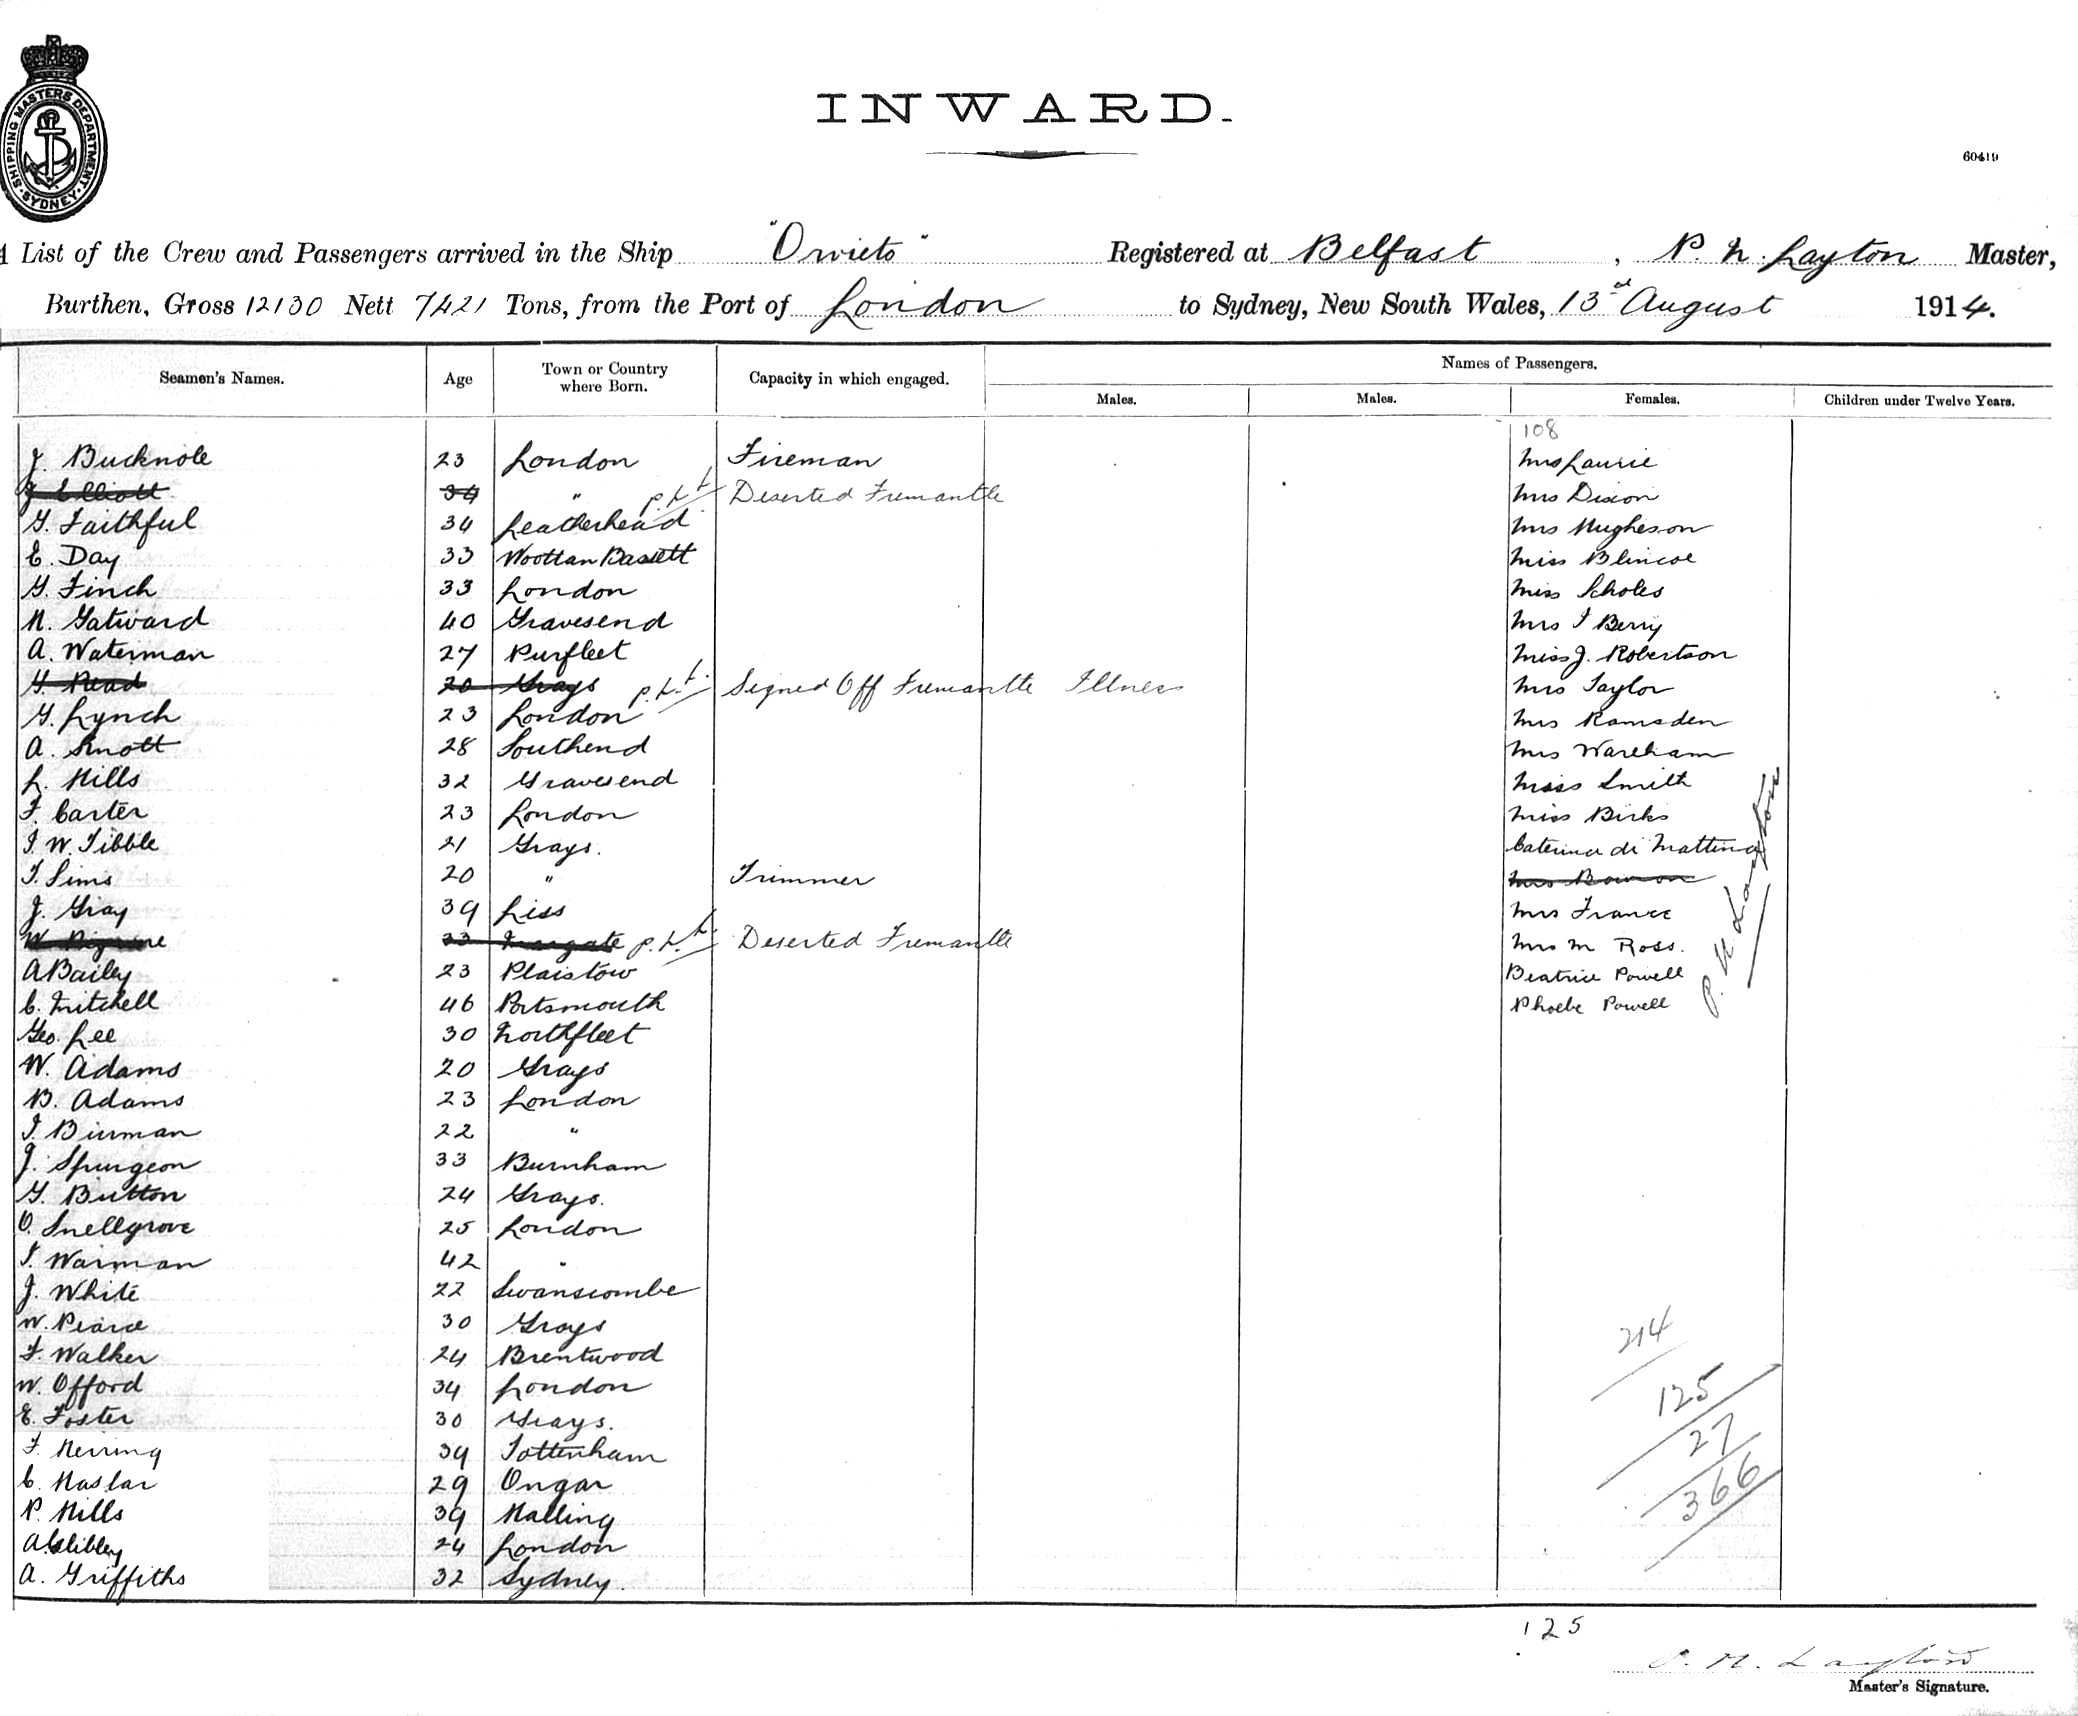 SHIPPING MASTERS DEPARTMENT · SYDNEY ·
INWARD.
60419
List of the Crew and Passengers arrived in the Ship "Orvieto" Registered at Belfast, P. N. Layton Master,
Burthen, Gross 12130 Nett 7421 Tons, from the Port of London to Sydney, New South Wales, 13 August 1914.
Seamen's Names. Age Town or Country where Born. Capacity in which engaged. Names of Passengers.
Males. Males. Females. Children under Twelve Years.
108
J. Bucknole 23 London Fireman Mrs Laurie
J Elliott 34 " Deserted Fremantle Mrs Dixon
G. Faithful 34 Leatherhead Mrs Hugheson
E. Day 33 Woottan Bassett Miss Blincoe
G. Finch 33 London Miss Scholes
H. Gatward 40 Gravesend Mrs I Berry
A. Waterman 27 Purfleet Miss J. Robertson
G. Read 20 Grays Signed Off Fremantle Illness Mrs Taylor
G. Lynch 23 London Mrs Ramsden
A. Knott 28 Southend Mrs Wareham
L. Hills 32 Gravesend Miss Smith
F. Carter 23 London Miss Birks
I. W. Tibble 21 Grays. Caterina di Mattina
T. Sims 20 " Trimmer Mrs
J. Gray 39 Liss Mrs France
W 33 Margate Deserted Fremantle Mrs M Ross.
A Bailey 23 Plaistow Beatrice Powell
C. Mitchell 46 Portsmouth Phoebe Powell
P. N Layton
Geo. Lee 30 Northfleet
W. Adams 20 Grays
B. Adams 23 London
T. Birman 22 "
J. Spurgeon 33 Burnham
G. Button 24 Grays.
O. Snellgrove 25 London
T. Warman 42 "
J. White 22 Swanscombe
W. Pearce 30 Grays
F. Walker 24 Brentwood
W. Offord 34 London
E. Foster 30 Grays.
F. Herring 39 Tottenham
C. Haslar 29 Ongar
P. Hills 39 Halling
A Clibley 24 London
A. Griffiths 32 Sydney.
214
125
27
366
125
P. N. Layton
Master's Signature.